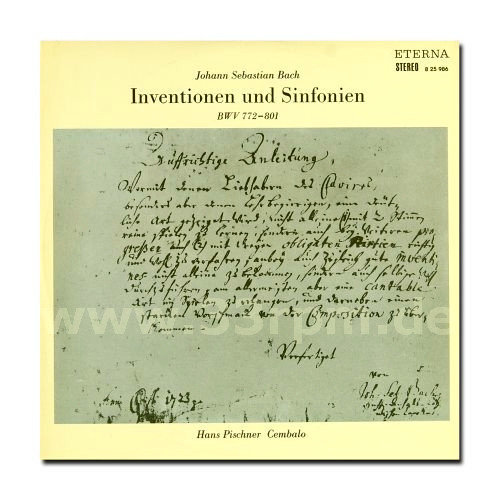 ETERNA
STEREO 8 25 986
Johann Sebastian Bach
Inventionen und Sinfonien
BWV 772–801
Auffrichtige Anleitung,
Wormit denen Liebhabern des Clavires,
besonders aber denen Lehrbegierigen, eine deüt-
liche Art gezeiget wird, nicht alleine mit 2 Stimen
reine spielen zu lernen, sondern auch bey weiteren pro-
greßen mit dreyen obligaten Partien
und wohl zu verfahren, anbey auch zugleich gute inventi-
ones nicht alleine zu bekommen, sondern auch selbige wohl
durchzuführen, am allermeisten aber eine cantable
Art im Spielen zu erlangen, und darneben einen
starcken Vorschmack von der Composition zu über-
kommen.
Verfertiget
von
Anno Chr. 1723.
Joh. Seb. Bach
www.33rpm.de
Hans Pischner Cembalo